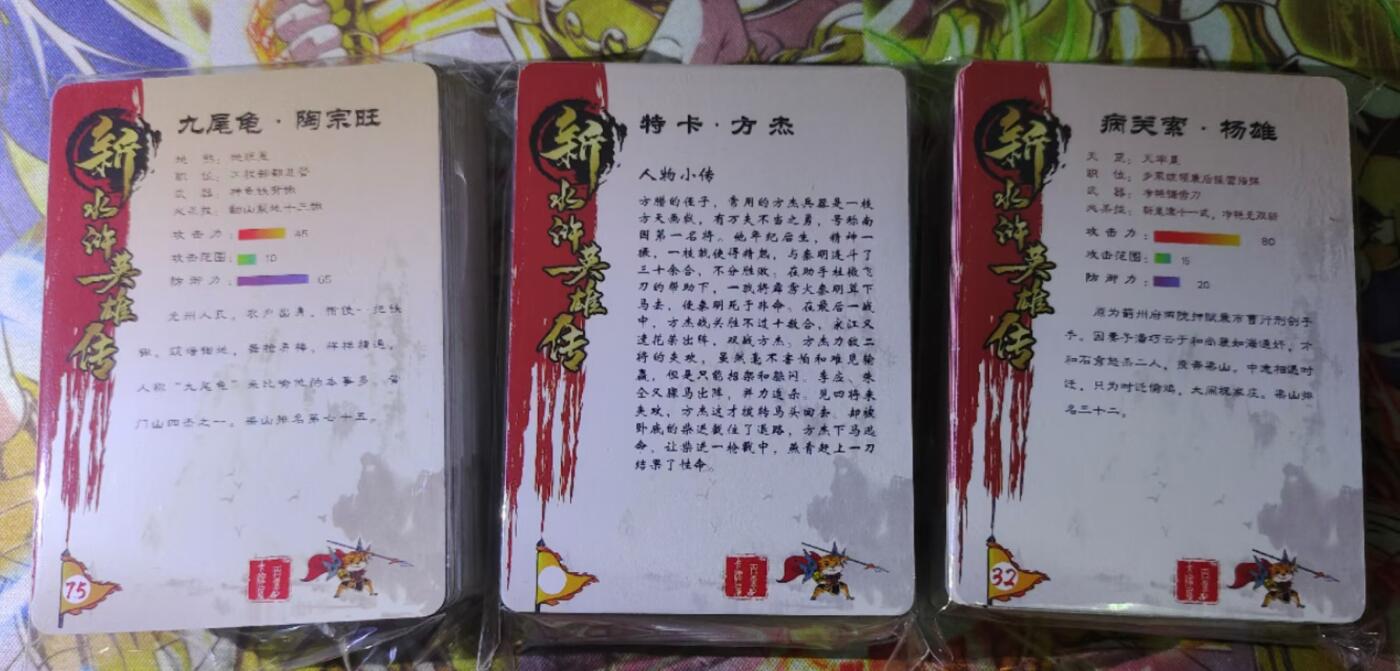 新水浒英雄传
九尾龟·陶宗旺
地煞：地理星
职位：
武器：神龟铁骨锹
必杀技：翻山裂地十三锹
攻击力：45
攻击范围：10
防御力：65
光州人氏，农户出身，惯使一把铁
锹，
人称“九尾龟”来比喻他的本事多。黄
门山四杰之一。梁山排名第七十五。
75
新水浒英雄传
特卡·方杰
人物小传
方腊的侄子，常用的方杰兵器是一枝
方天画戟，有万夫不当之勇，号称南
国第一名将。他年纪后生，精神一
撮，一枝戟使得精熟，与秦明连斗了
三十余合，不分胜败；在助手杜微飞
刀的帮助下，一戟将霹雳火秦明耸下
马去，使秦明死于非命。在最后一战
中，方杰战关胜不过十数合，宋江又
遣花荣出阵，双战方杰；方杰力敌二
将的夹攻，虽然毫不害怕和难见输
赢，但是只能招架和躲闪。李应、朱
仝又骤马出阵，并力追杀。见四将来
夹攻，方杰这才拨转马头回去。却被
卧底的柴进截住了退路，方杰下马逃
命，让柴进一枪戳中，燕青赶上一刀
结果了性命。
新水浒英雄传
病关索·杨雄
天罡：天牢星
职位：
武器：
必杀技：
攻击力：80
攻击范围：15
防御力：20
原为蓟州府两院押狱兼市曹行刑刽子
手。因妻子潘巧云于和尚裴如海通奸，才
和石秀怒杀二人，投奔梁山。中途相遇时
迁，只为时迁偷鸡，大闹祝家庄。梁山排
名三十二。
32